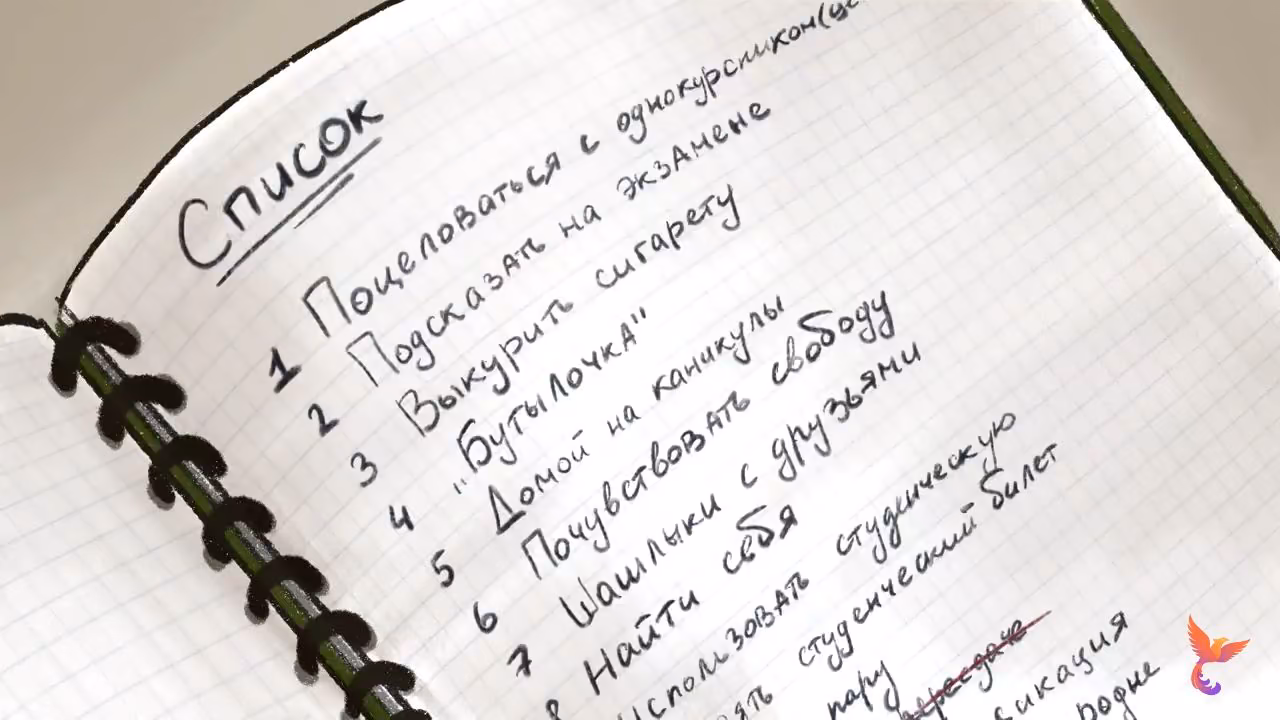 Список
1 Поцеловаться с однокурсником(
2 Подсказать на экзамене
3 Выкурить сигарету
4 "Бутылочка"
5 Домой на каникулы
6 Почувствовать свободу
7 Шашлыки с друзьями
8 Найти себя
использовать студенческую
студенческий билет
пару пересдаче